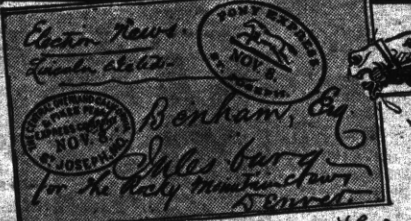 Election News.
Lincoln elected.
PONY EXPRESS
NOV. 8.
ST. JOSEPH.
NOV. 8
ST JOSEPH, MO.
Benham, Esq
Julesburg
for the Rocky Mountain News
Denver.